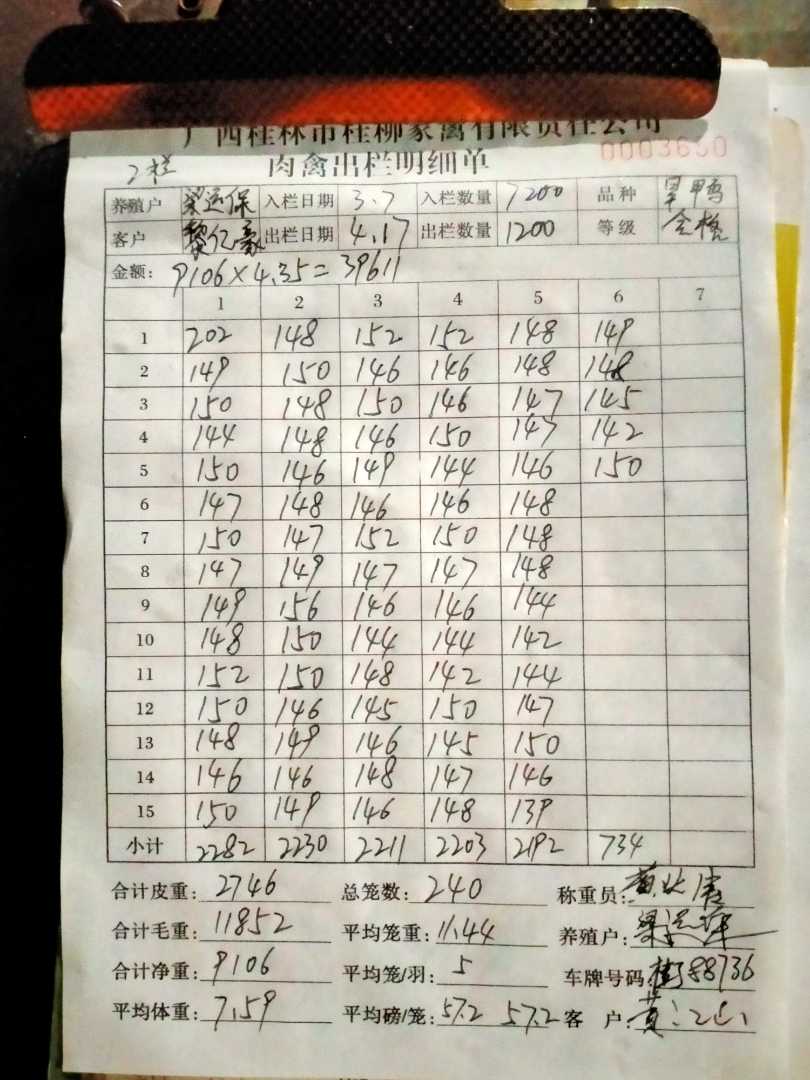 广西桂林市桂柳家禽有限责任公司
2栏 肉禽出栏明细单 0003630
养殖户 梁运保 入栏日期 3.7 入栏数量 7200 品种 旱鸭
客户 黎亿豪 出栏日期 4.17 出栏数量 1200 等级 合格
金额: 9106×4.35=39611
1 2 3 4 5 6 7
1 202 148 152 152 148 149
2 149 150 146 146 148 148
3 150 148 150 146 147 145
4 144 148 146 150 147 142
5 150 146 149 144 146 150
6 147 148 146 146 148
7 150 147 152 150 148
8 147 149 147 147 148
9 149 156 146 146 144
10 148 150 144 144 142
11 152 150 148 142 144
12 150 146 145 150 147
13 148 149 146 145 150
14 146 146 148 147 146
15 150 149 146 148 139
小计 2282 2230 2211 2203 2192 734
合计皮重: 2746 总笼数: 240 称重员:
合计毛重: 11852 平均笼重: 11.44 养殖户:
合计净重: 9106 平均笼/羽: 5 车牌号码: 桂88736
平均体重: 7.59 平均磅/笼: 57.2 57.2 客 户: 黄